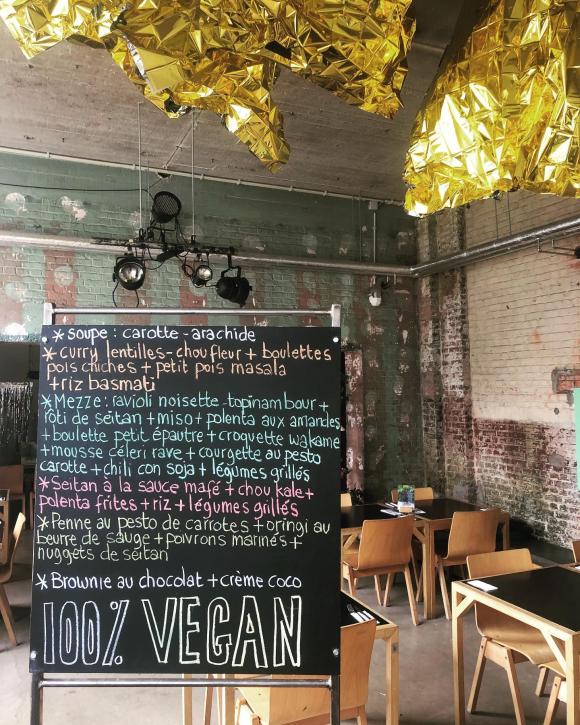 * soupe : carotte - arachide
* curry lentilles - choufleur + boulettes
pois chiches + petit pois masala
+ riz basmati
* Mezze : ravioli noisette - topinambour +
rôti de seitan + miso + polenta aux amandes
+ boulette petit épautre + croquette wakamé
+ mousse céleri rave + courgette au pesto
carotte + chili con soja + légumes grillés
* Seitan à la sauce mafé + chou kale +
polenta frites + riz + légumes grillés
* Penne au pesto de carottes + oringi au
beurre de sauge + poivrons marinés +
nuggets de seitan
* Brownie au chocolat + crème coco
100% VEGAN